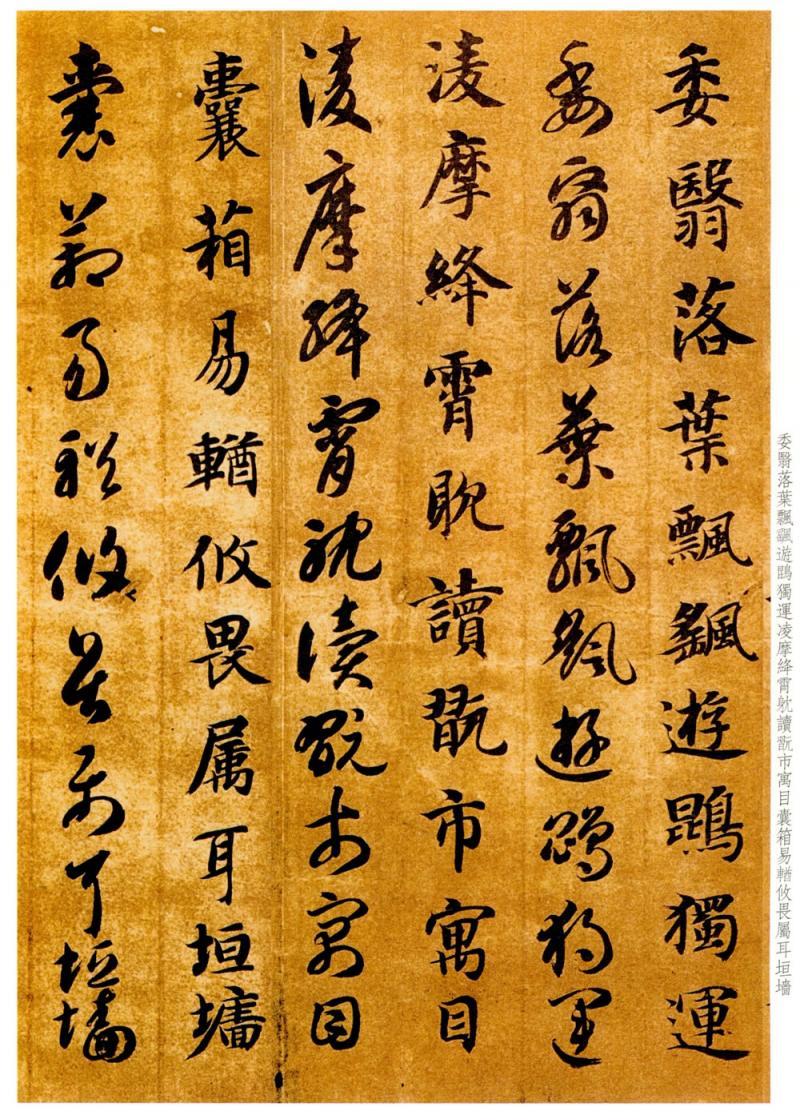 委翳落葉飄颻遊鵾獨運
委翳落葉飄颻遊鵾獨運
淩摩絳霄耽讀翫市寓目
淩摩絳霄躭讀翫市寓目
囊箱易輶攸畏属耳垣墻
囊箱易輶攸畏属耳垣墻
委翳落葉飄颻遊鵾獨運凌摩絳霄躭讀翫市寓目囊箱易輶攸畏屬耳垣墻